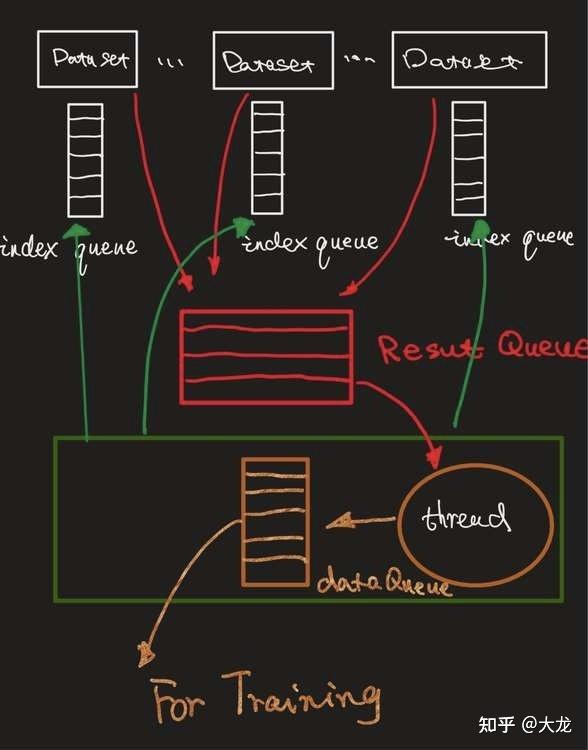 Dataset ... Dataset ... Dataset
index queue index queue index queue
Resut Queue
thread
dataQueue
For Training
知乎 @大龙